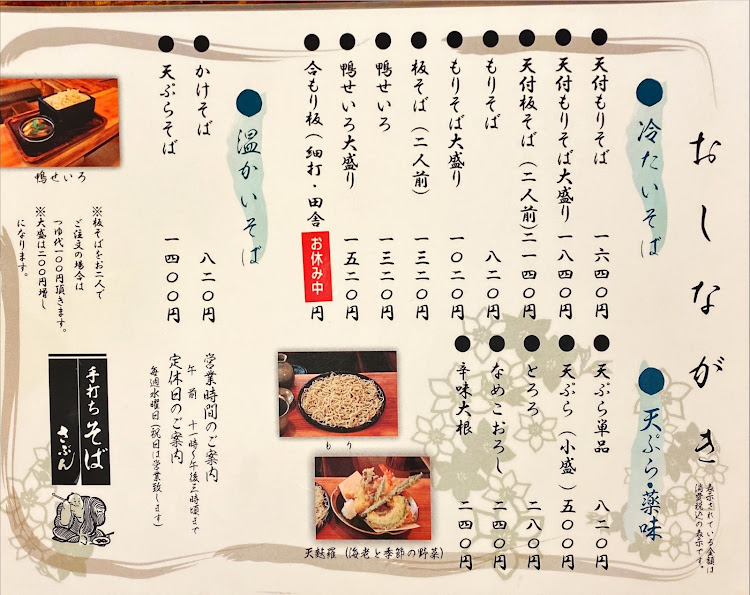 おしながき
表示されている金額は
消費税込の表示です。
冷たいそば
天付もりそば 一六四〇円
天付もりそば大盛り 一八四〇円
天付板そば(二人前)二一四〇円
もりそば 八二〇円
もりそば大盛り 一〇二〇円
板そば(二人前) 一三二〇円
鴨せいろ 一三二〇円
鴨せいろ大盛り 一五二〇円
合もり板(細打・田舎 お休み中 円
天ぷら・薬味
天ぷら単品 八二〇円
天ぷら(小盛) 五〇〇円
とろろ 二八〇円
なめこおろし 二四〇円
辛味大根 二四〇円
温かいそば
かけそば 八二〇円
天ぷらそば 一四〇〇円
鴨せいろ
※板そばをお二人で
ご注文の場合は
つゆ代一〇〇円頂きます。
※大盛は二〇〇円増し
になります。
もり
天麩羅(海老と季節の野菜)
営業時間のご案内
午前 十一時〜午後三時頃まで
定休日のご案内
毎週水曜日(祝日は営業致します)
手打ち そば
さぶん